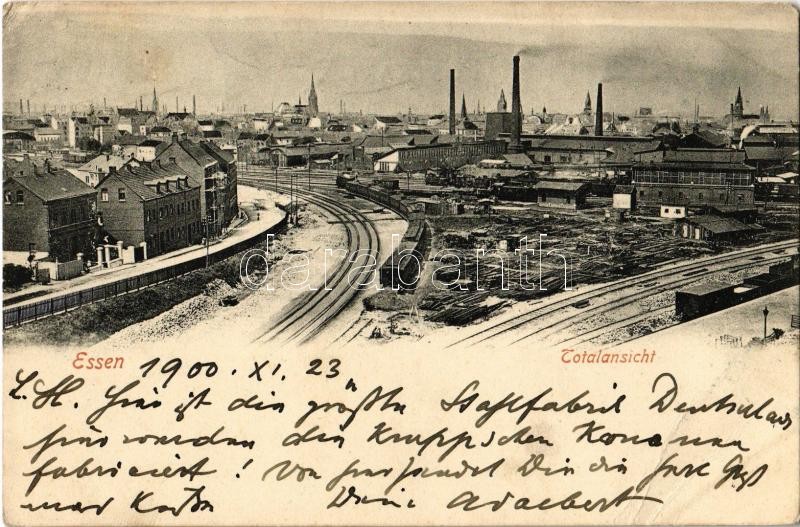 darabanth
Essen
Totalansicht
1900. XI. 23
L. H. Hier ist die größte Stahlfabrik Deutschlands
hier werden die Krupp'schen Kanonen
fabriciert! Von hier sendet Dir die
Dein Adalbert